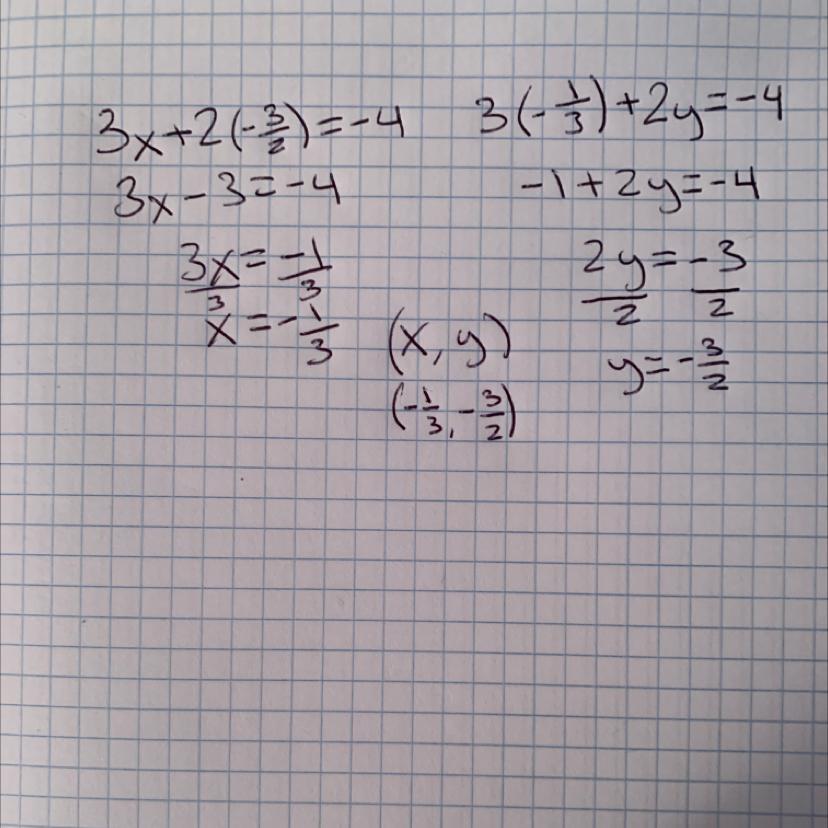 3x+2(-3/2)=-4
3x-3=-4
3x/3=-1/3
x=-1/3
3(-1/3)+2y=-4
-1+2y=-4
2y/2=-3/2
y=-3/2
(x,y)
(-1/3,-3/2)